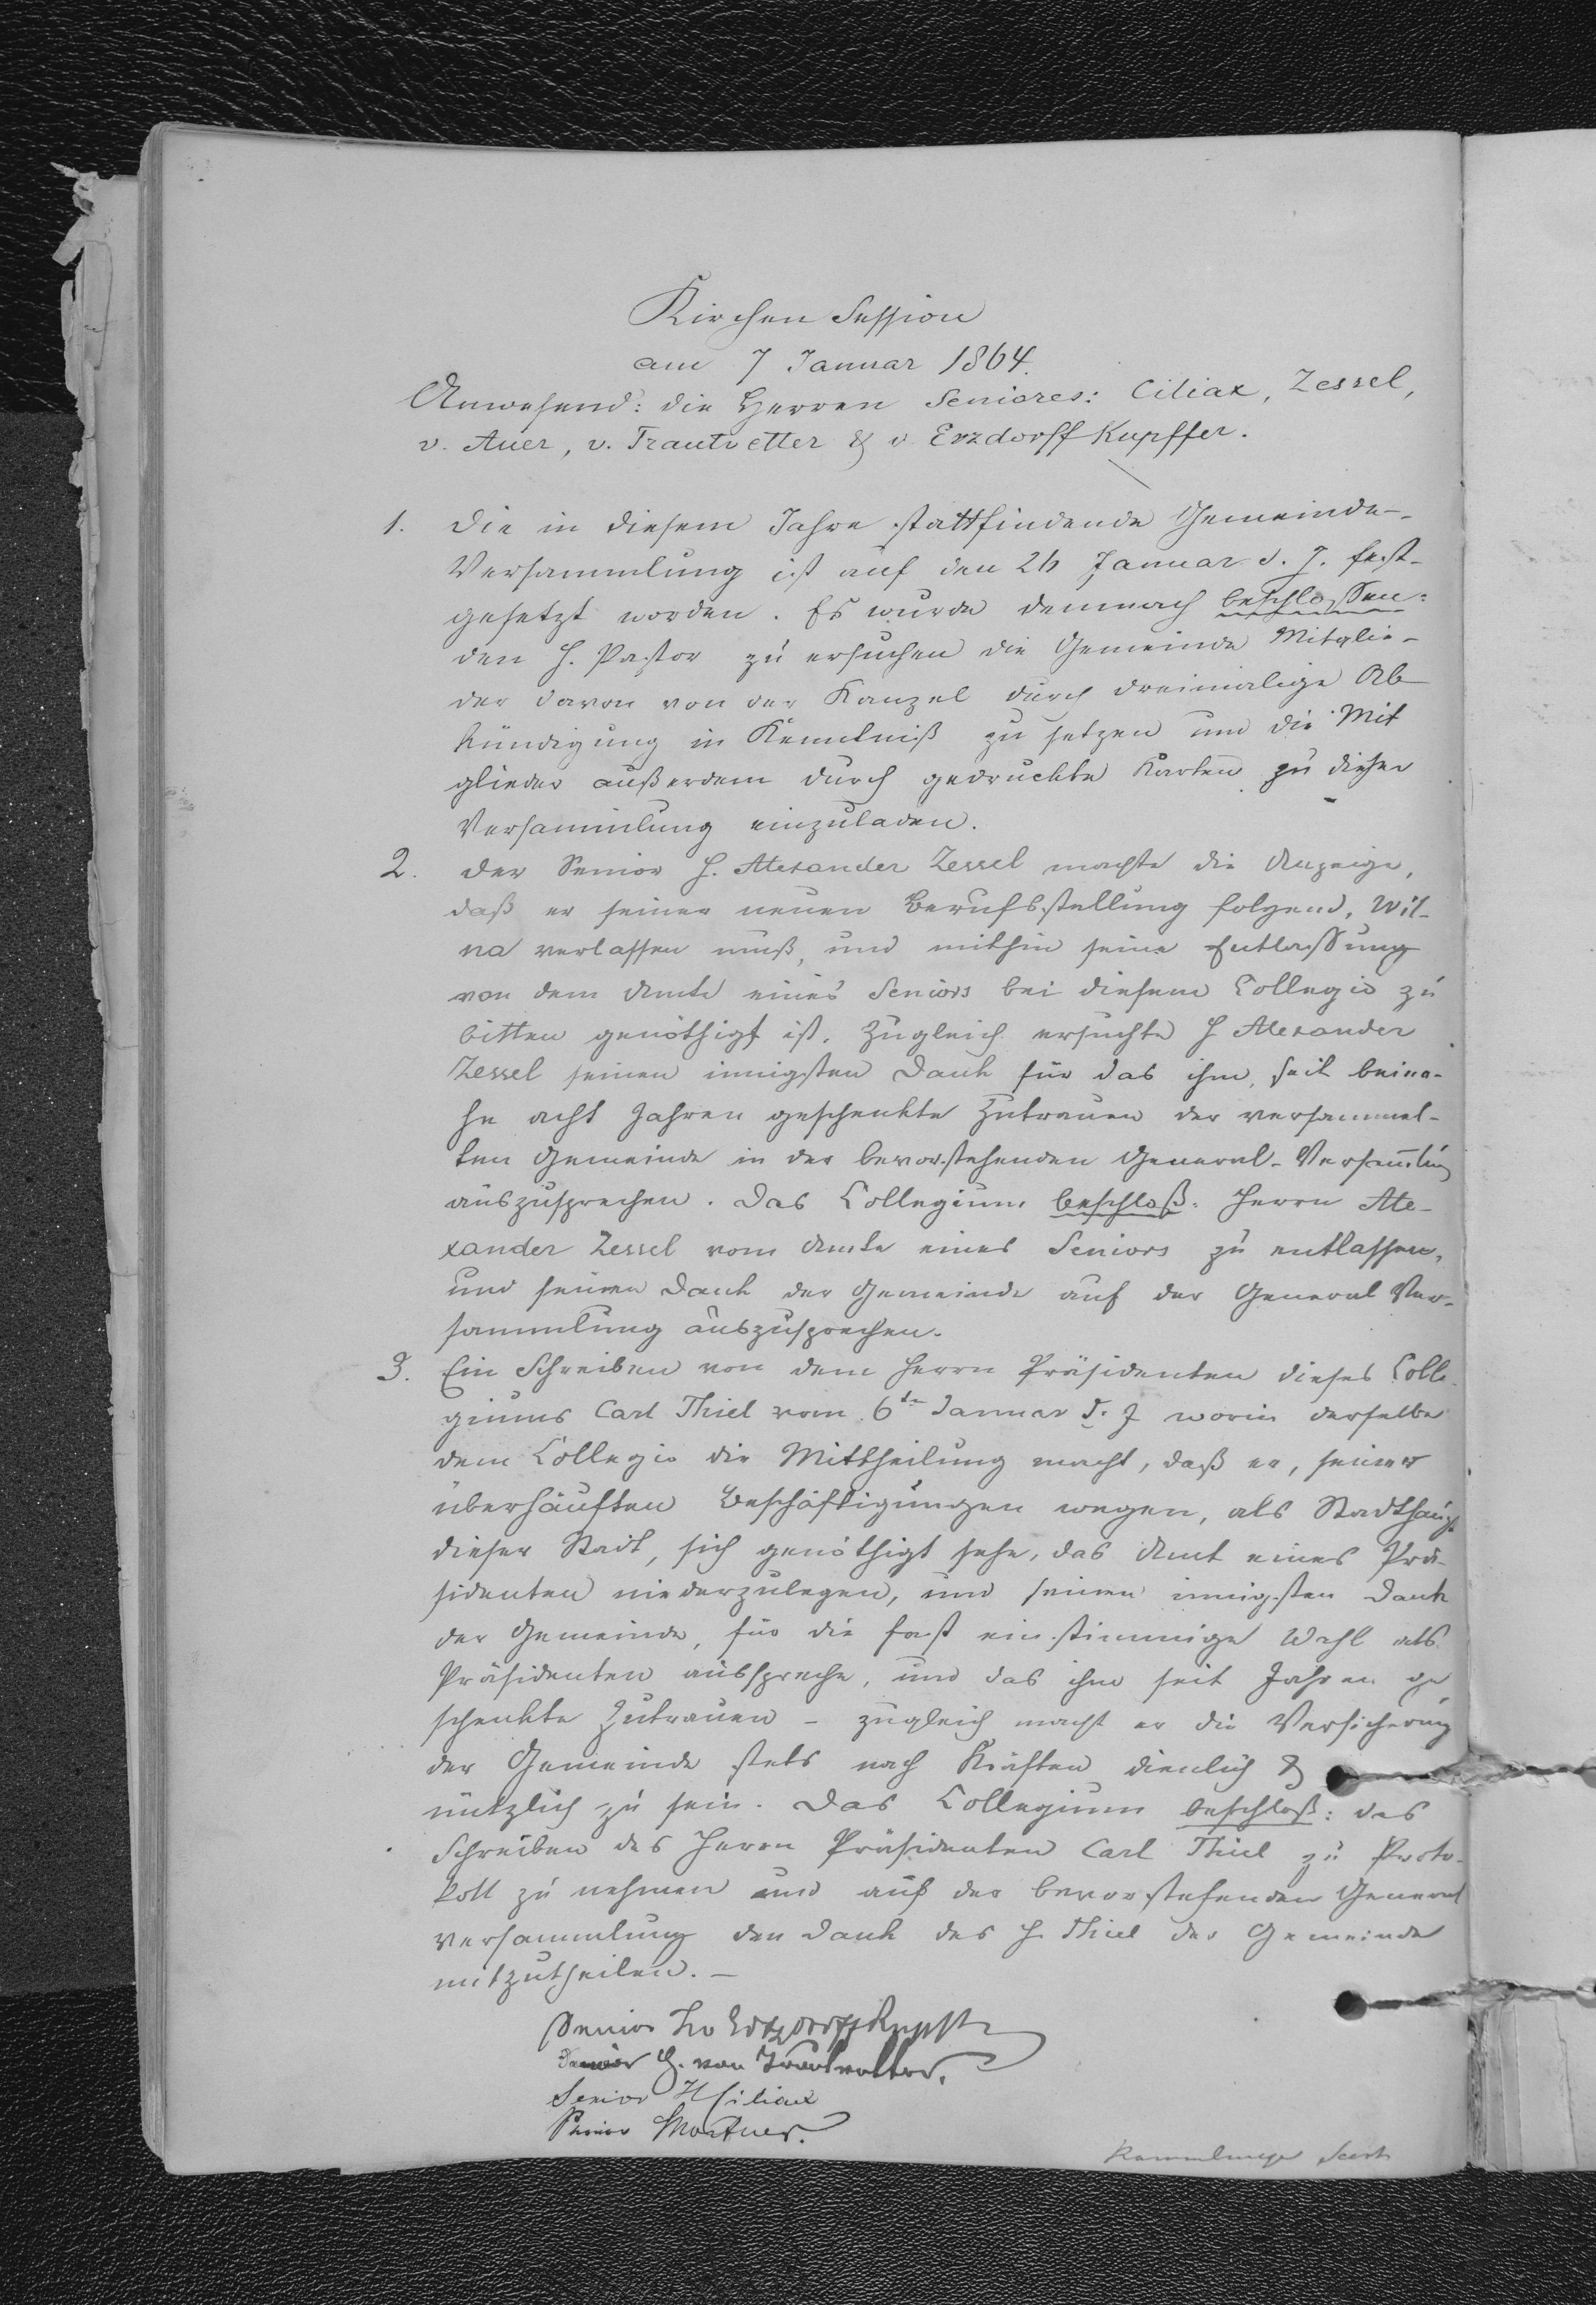 Kirchen Session
am 7 Januar 1864.
Anwesend: die Herren Seniores: Ciliax, Zessel,
v. Auer, v. Trautvetter & v Erzdorff Kupffer.
1. Die in diesem Jahre stattfindende Gemeinde-
Versammlung ist auf den 26 Januar d. J. fest-
gesetzt worden. Es wurde demnach beschlossen:
den H. Pastor zu ersuchen die Gemeinde Mitglie-
der davon von der Kanzel durch dreimalige Ab
kündigung in Kenntniß zu setzen und die Mit
glieder außerdem durch gedruckte Karten zu dieser
Versammlung einzuladen.
2. Der Senior H. Alexander Zessel machte die Anzeige,
daß er seiner neuen Berufsstellung folgend, Wil-
na verlassen muß, und mithin seine Entlassung
von dem Amte eines Seniors bei diesem Collegio zu
bitten genöthigt ist. Zugleich ersuchte H Alexander
Zessel seinen innigsten Dank für das ihm, seit beina-
he acht Jahren geschenkte Zutrauen der versammel-
ten Gemeinde in der bevorstehenden General-Versamlung
auszusprechen. Das Collegium beschloß: Herrn Ale-
xander Zessel vom Amte eines Seniors zu entlassen,
und seinen Dank der Gemeinde auf der General Ver-
sammlung auszusprechen.
3. Ein Schreiben von dem Herrn Präsidenten dieses Colle-
giums Carl Thiel vom 6ten Januar d. J worin derselbe
dem Collegio die Mittheilung macht, daß er, seiner
überhäuften Beschäftigungen wegen, als Stadthaupt
dieser Stadt, sich genöthigt sehe, das Amt eines Prä-
sidenten niederzulegen, und seinen innigsten Dank
der Gemeinde, für die fast einstimmige Wahl als
Präsidenten ausspreche, und das ihm seit Jahren ge
schenkte Zutrauen – zugleich macht er die Versicherung
der Gemeinde stets nach Kräften dienlich &
nützlich zu sein. Das Collegium beschloß: das
Schreiben des Herrn Präsidenten Carl Thiel zu Proto-
koll zu nehmen und auf der bevorstehenden General
versammlung den Dank des H. Thiel der Gemeinde
mitzutheilen. –
Senior Erzdorff Kupffer
Senior G. von Trautvetter.
Senior H Ciliax
Senior v Auer.